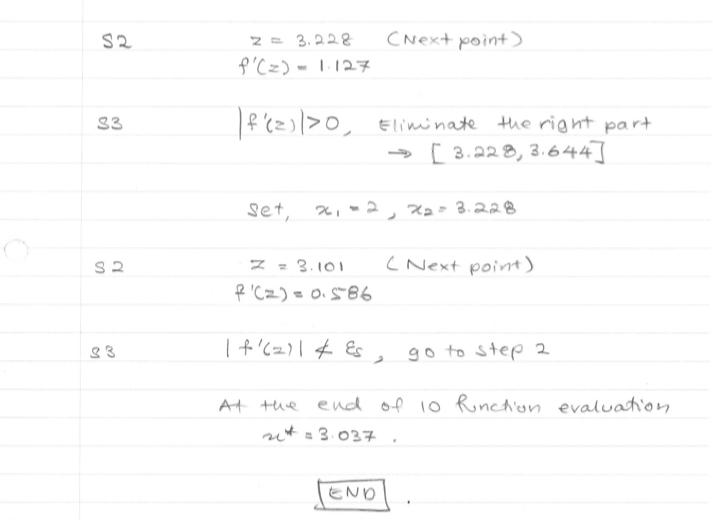 S2 z = 3.228 (Next point)
f'(z) = 1.127
S3 |f'(z)|>0, Eliminate the right part
→ [3.228, 3.644]
Set, x₁ = 2, x₂ = 3.228
S2 z = 3.101 (Next point)
f'(z) = 0.586
S3 |f'(z)| ≮ εs, go to step 2
At the end of 10 function evaluation
x* = 3.037.
END.